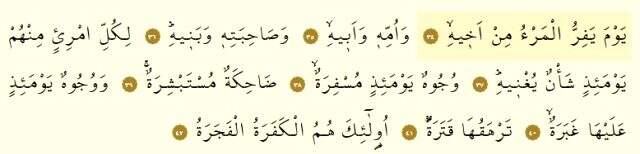 يَوْمَ يَفِرُّ الْمَرْءُ مِنْ اَخ۪يهِۙ ﴿٣٤﴾ وَاُمِّه۪ وَاَب۪يهِۙ ﴿٣٥﴾ وَصَاحِبَتِه۪ وَبَن۪يهِۜ ﴿٣٦﴾ لِكُلِّ امْرِئٍ مِنْهُمْ
يَوْمَئِذٍ شَأْنٌ يُغْن۪يهِۜ ﴿٣٧﴾ وُجُوهٌ يَوْمَئِذٍ مُسْفِرَةٌۙ ﴿٣٨﴾ ضَاحِكَةٌ مُسْتَبْشِرَةٌۚ ﴿٣٩﴾ وَوُجُوهٌ يَوْمَئِذٍ
عَلَيْهَا غَبَرَةٌۙ ﴿٤٠﴾ تَرْهَقُهَا قَتَرَةٌۜ ﴿٤١﴾ اُو۬لٰٓئِكَ هُمُ الْكَفَرَةُ الْفَجَرَةُ ﴿٤٢﴾